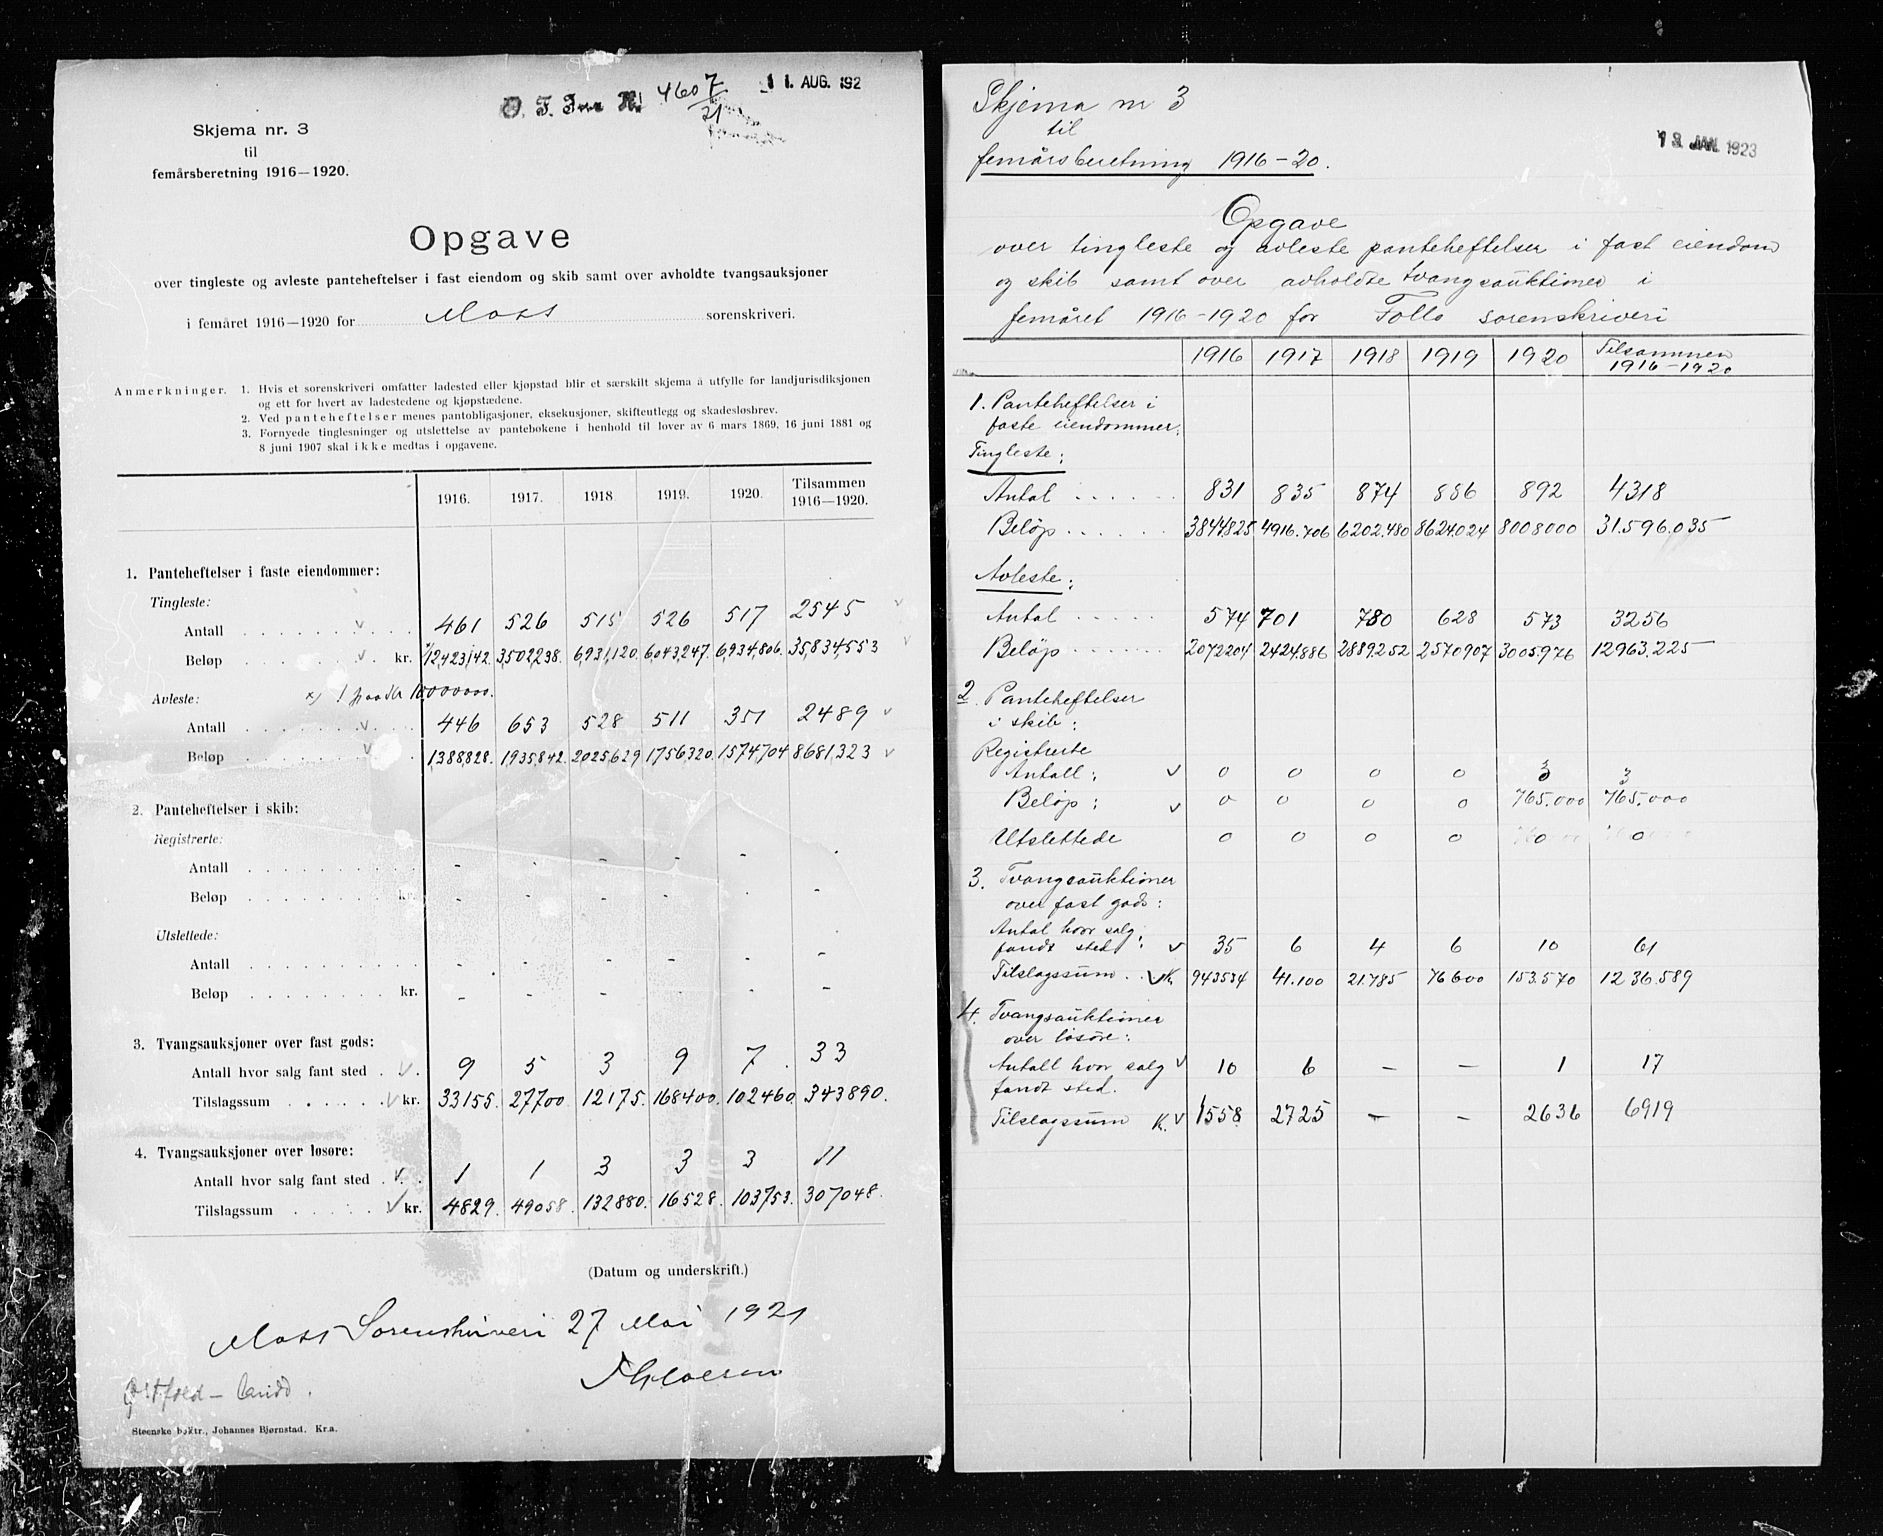 O. F. Jnr. N. 4607/21
11. AUG. 192
Skjema nr. 3
til
femårsberetning 1916—1920.
Opgave
over tingleste og avleste panteheftelser i fast eiendom og skib samt over avholdte tvangsauksjoner
i femåret 1916—1920 for Moss sorenskriveri.
Anmerkninger. 1. Hvis et sorenskriveri omfatter ladested eller kjøpstad blir et særskilt skjema å utfylle for landjurisdiksjonen
og ett for hvert av ladestedene og kjøpstædene.
2. Ved panteheftelser menes pantobligasjoner, eksekusjoner, skifteutlegg og skadesløsbrev.
3. Fornyede tinglesninger og utslettelse av pantebøkene i henhold til lover av 6 mars 1869, 16 juni 1881 og
8 juni 1907 skal ikke medtas i opgavene.
1916. 1917. 1918 1919. 1920. Tilsammen
1916—1920.
1. Panteheftelser i faste eiendommer:
Tingleste:
Antall 461 526 515 526 517 2545
Beløp kr. x/12,423,142. 3,502,238. 6,931,120. 6,043,247. 6,934,806. 35,834,553
Avleste: x) 1 paa kr 10,000000.
Antall 446 653 528 511 351 2489
Beløp 1,388,828. 1935,842. 2025,629 1756320. 1574,704 8681,323
2. Panteheftelser i skib:
Registrerte:
Antall - - - - - -
Beløp kr. - - - - - -
Utslettede:
Antall - - - - - -
Beløp kr. - - - - - -
3. Tvangsauksjoner over fast gods:
Antall hvor salg fant sted 9 5 3 9 7 33
Tilslagssum kr. 33155. 27700. 12175. 168400. 102460. 343890.
4. Tvangsauksjoner over løsøre:
Antall hvor salg fant sted 1 1 3 3 3 11
Tilslagssum kr. 4829. 49058. 132880. 16528. 103753. 307048.
(Datum og underskrift.)
Moss Sorenskriveri 27 Mai 1921
Østfold - landd.
Steenske boktr., Johannes Bjørnstad. Kr.a.
Skjema nr 3
til
femårsberetning 1916-20.
13. JAN. 1923
Opgave
over tingleste og avleste panteheftelser i fast eiendom
og skib samt over avholdte tvangsauktioner i
femåret 1916-1920 for Follo sorenskriveri
1916 1917 1918 1919 1920 Tilsammen
1916-1920
1. Panteheftelser i
faste eiendommer.
Tingleste:
Antal 831 835 874 886 892 4318
Beløp 3844.825 4916.706 6202.480 8624.024 8008000 31.596.035
Avleste:
Antal 574 701 780 628 573 3256
Beløp 2072204 2424.886 2889.252 2570907 3005.976 12963.225
2. Panteheftelser
i skib:
Registrerte
Antall: 0 0 0 0 3 3
Beløp: 0 0 0 0 765.000 765.000
Utslettede 0 0 0 0 0 0
3. Tvangsauktioner
over fast gods:
Antal hvor salg
fandt sted: 35 6 4 6 10 61
Tilslagssum K. 943534 41.100 21.785 76600 153.570 1236.589
4. Tvangsauktioner
over løsøre:
Antall hvor salg 10 6 - - 1 17
fandt sted.
Tilslagssum K. 1558 2725 - - 2636 6919